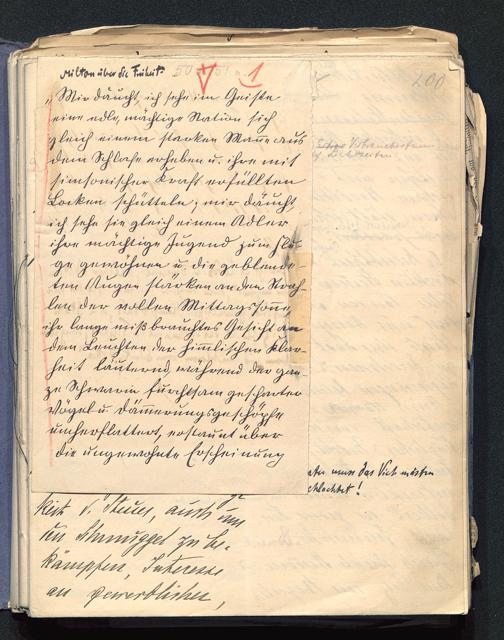 Milton über die Freiheit.
1
200
"Mir däucht, ich sehe im Geiste
eine edle, mächtige Nation sich
gleich einem starken Manne aus
dem Schlafe erheben u. ihre mit
simsonischer Kraft erfüllten
Locken schütteln; mir däucht,
ich sehe sie gleich einem Adler
ihre mächtige Jugend zum Flu-
ge gewöhnen u. die geblende-
ten Augen stärken an den Strah-
len der vollen Mittagssonne,
ihr lange mißbrauchtes Gesicht an
dem Leuchten der himmlischen Klar-
heit läuternd, während der gan-
ze Schwarm furchtsam gescharter
Vögel u. Dämmerungsgeschöpfe
umherflattert, erstaunt über
die ungewohnte Erscheinung
muss das Vieh mästen
schlachtet!
keit v. Steuer, auch um
den Schmuggel zu be-
kämpfen, Interesse
an gewerblicher,